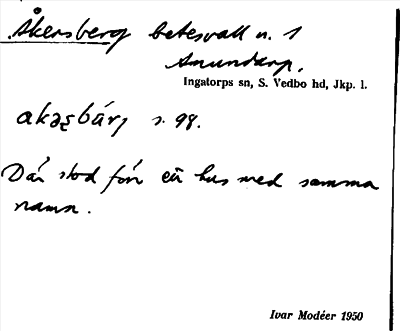 Åkersberg betesvall u. 1
Amundarp.
Ingatorps sn, S. Vedbo hd, Jkp. l.
s. 98.
Där stod förr ett hus med samma
namn.
Ivar Modéer 1950